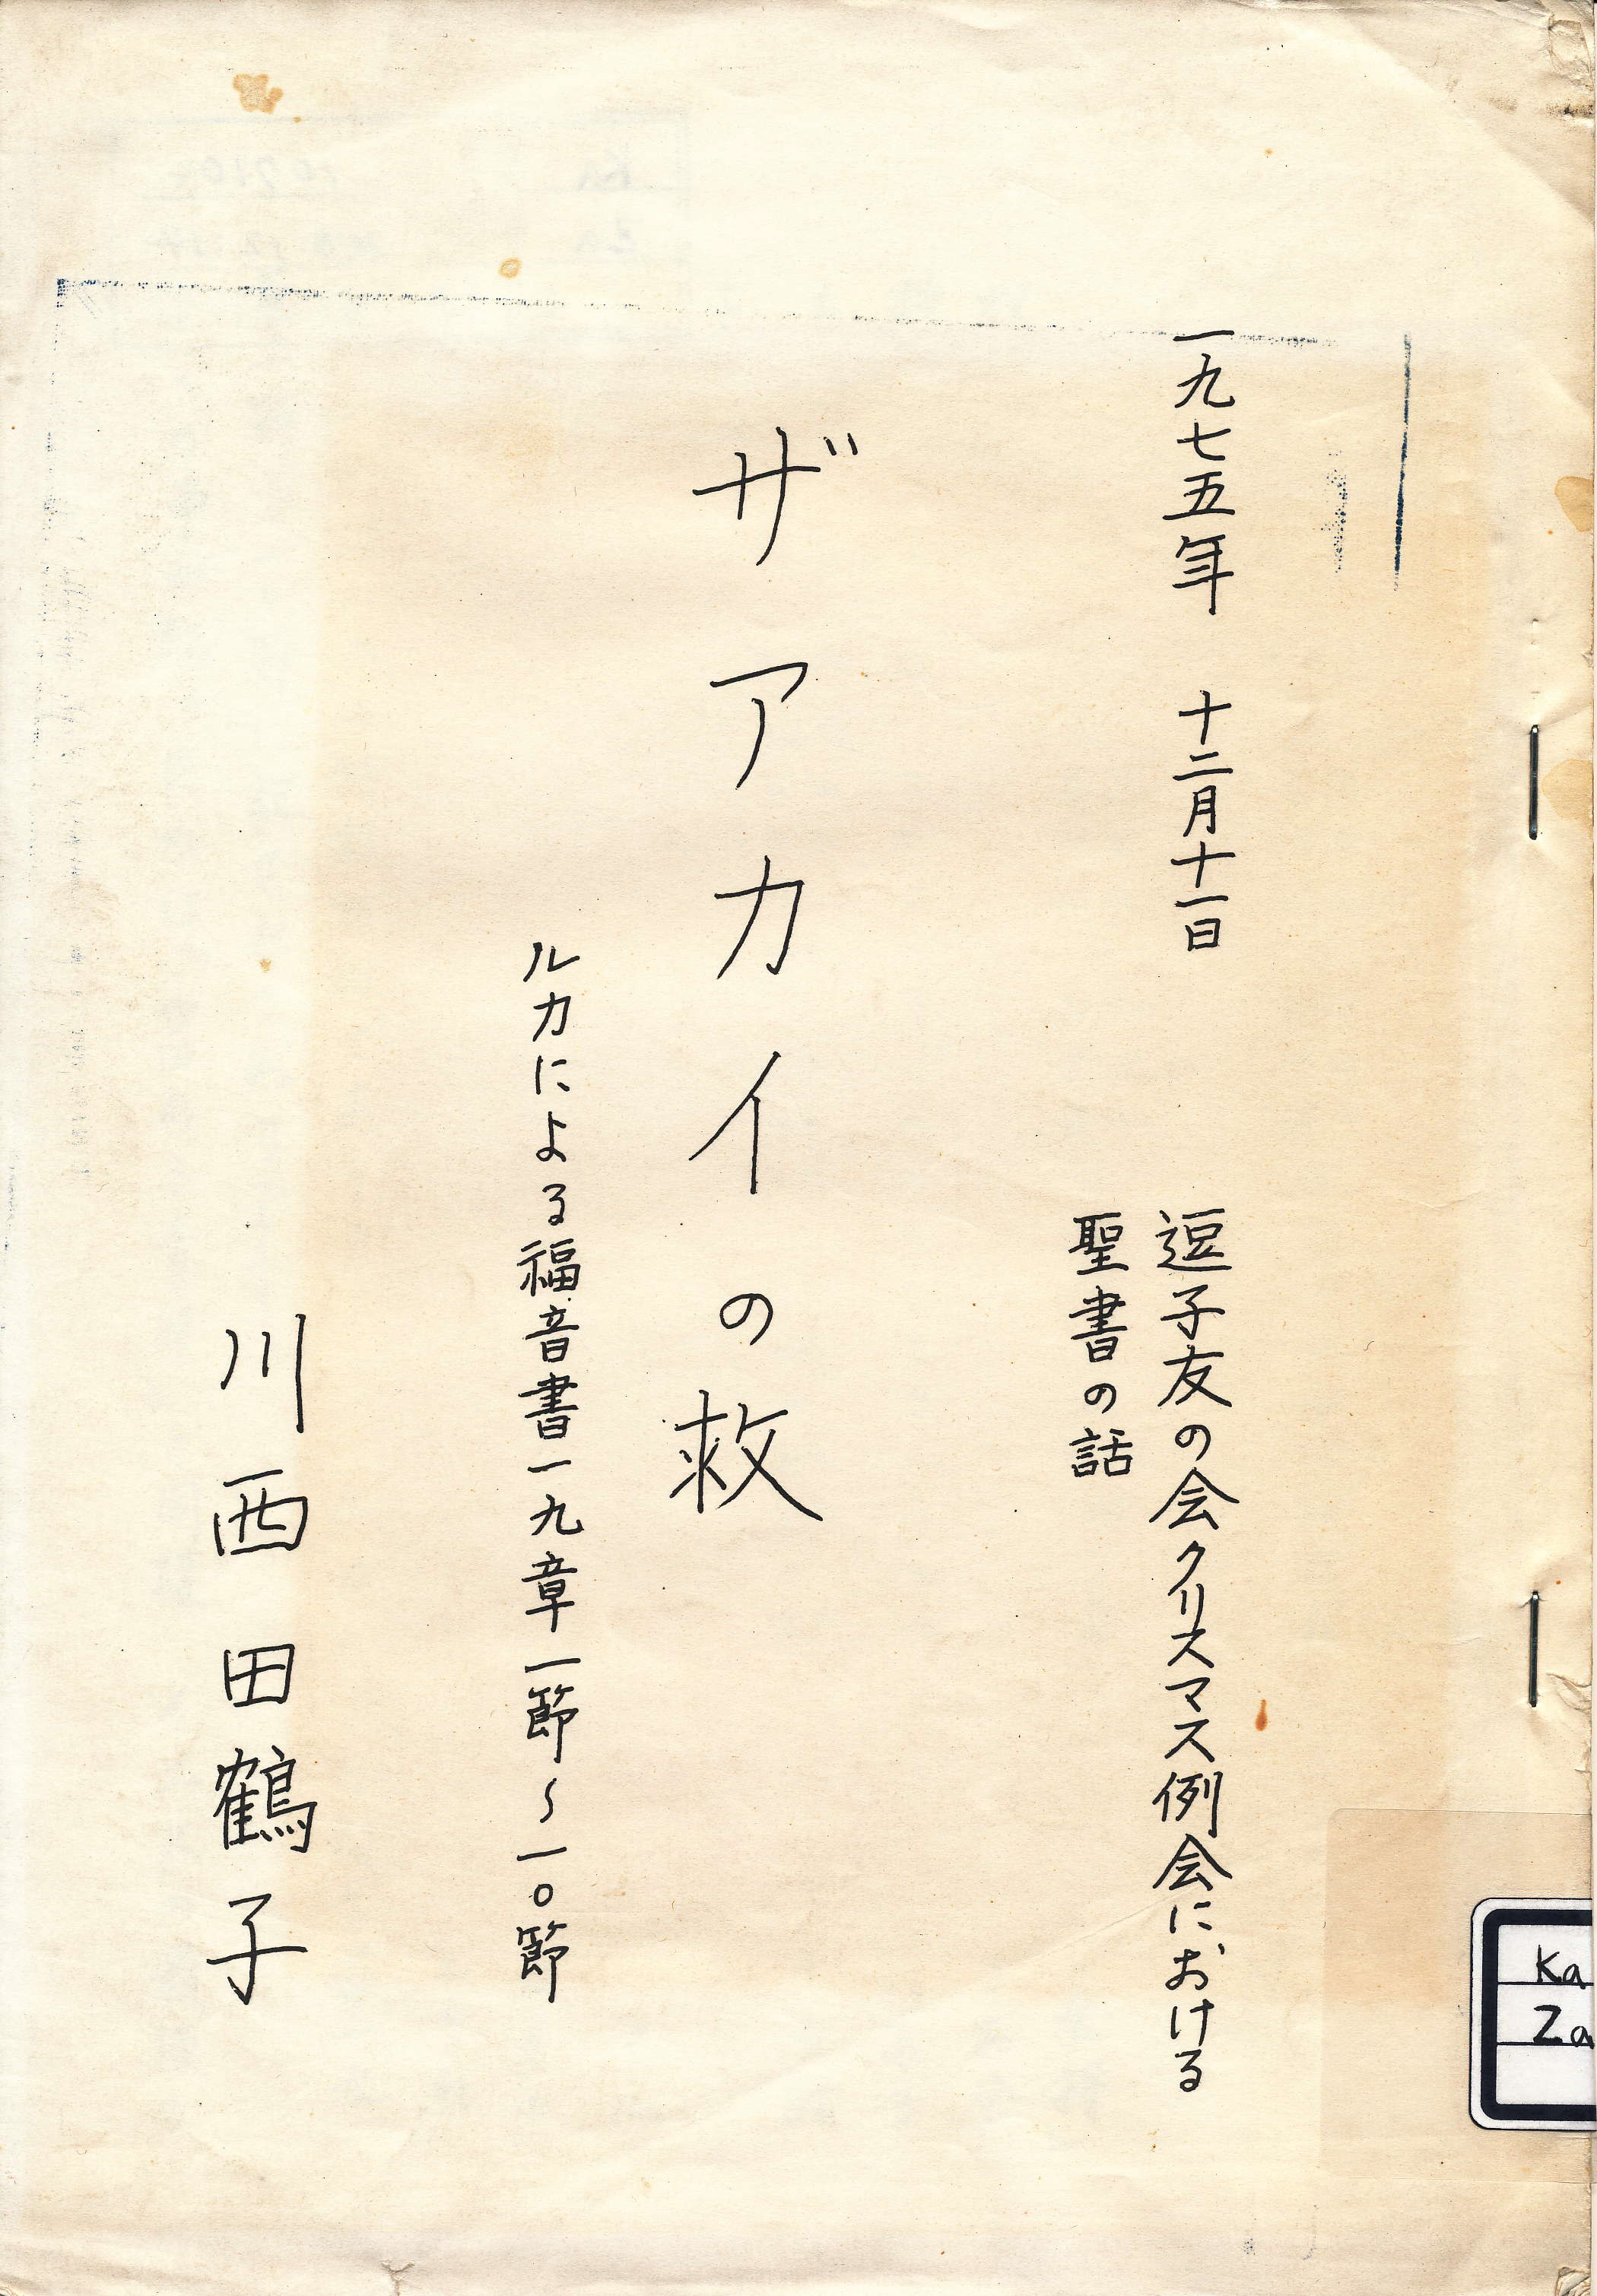 一九七五年　十二月十一日
逗子友の会クリスマス例会における
聖書の話
ザアカイの救
ルカによる福音書一九章一節〜一〇節
川西田鶴子
Ka
Za